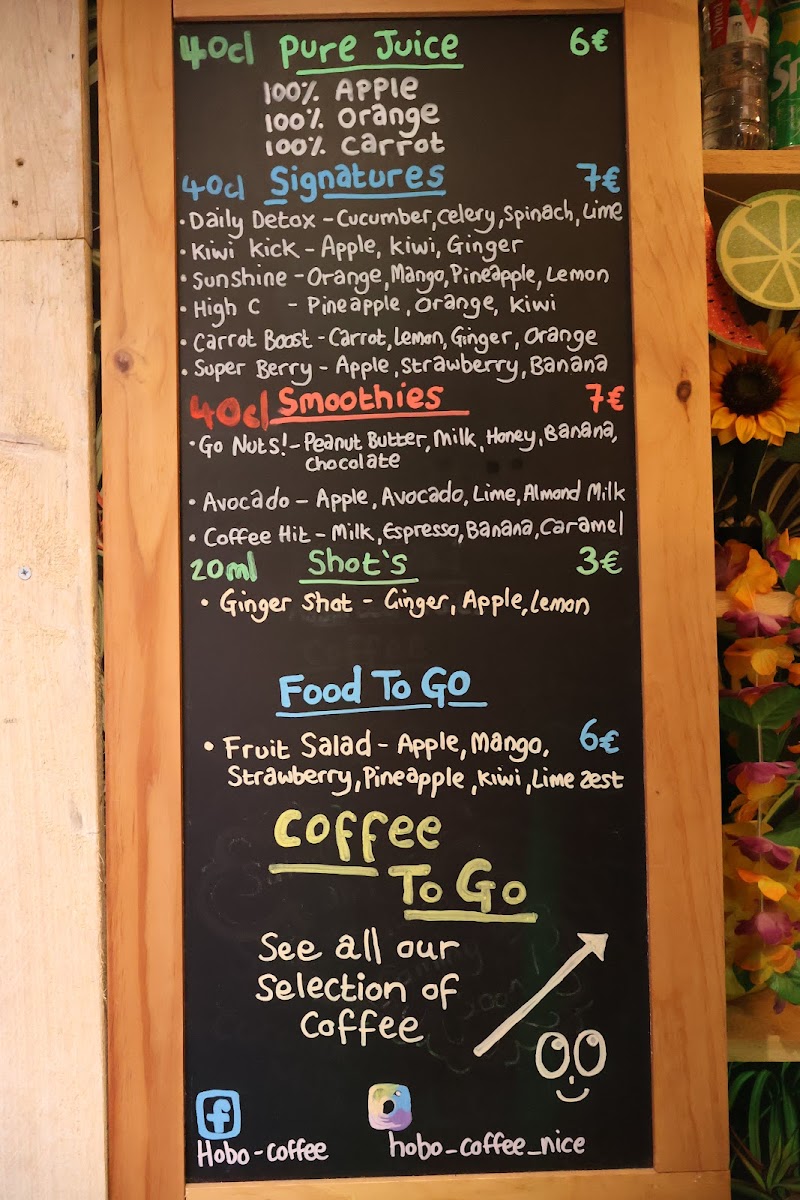 40cl Pure Juice 6€
100% Apple
100% Orange
100% Carrot
40cl Signatures 7€
• Daily Detox - Cucumber, Celery, Spinach, Lime
• Kiwi Kick - Apple, Kiwi, Ginger
• Sunshine - Orange, Mango, Pineapple, Lemon
• High C - Pineapple, Orange, Kiwi
• Carrot Boost - Carrot, Lemon, Ginger, Orange
• Super Berry - Apple, Strawberry, Banana
40cl Smoothies 7€
• Go Nuts! - Peanut Butter, Milk, Honey, Banana,
Chocolate
• Avocado - Apple, Avocado, Lime, Almond Milk
• Coffee Hit - Milk, Espresso, Banana, Caramel
20ml Shot's 3€
• Ginger Shot - Ginger, Apple, Lemon
Food To GO
• Fruit Salad - Apple, Mango, 6€
Strawberry, Pineapple, Kiwi, Lime zest
Coffee
To Go
See all our
Selection of
Coffee
f
Hobo-coffee
hobo_coffee_nice